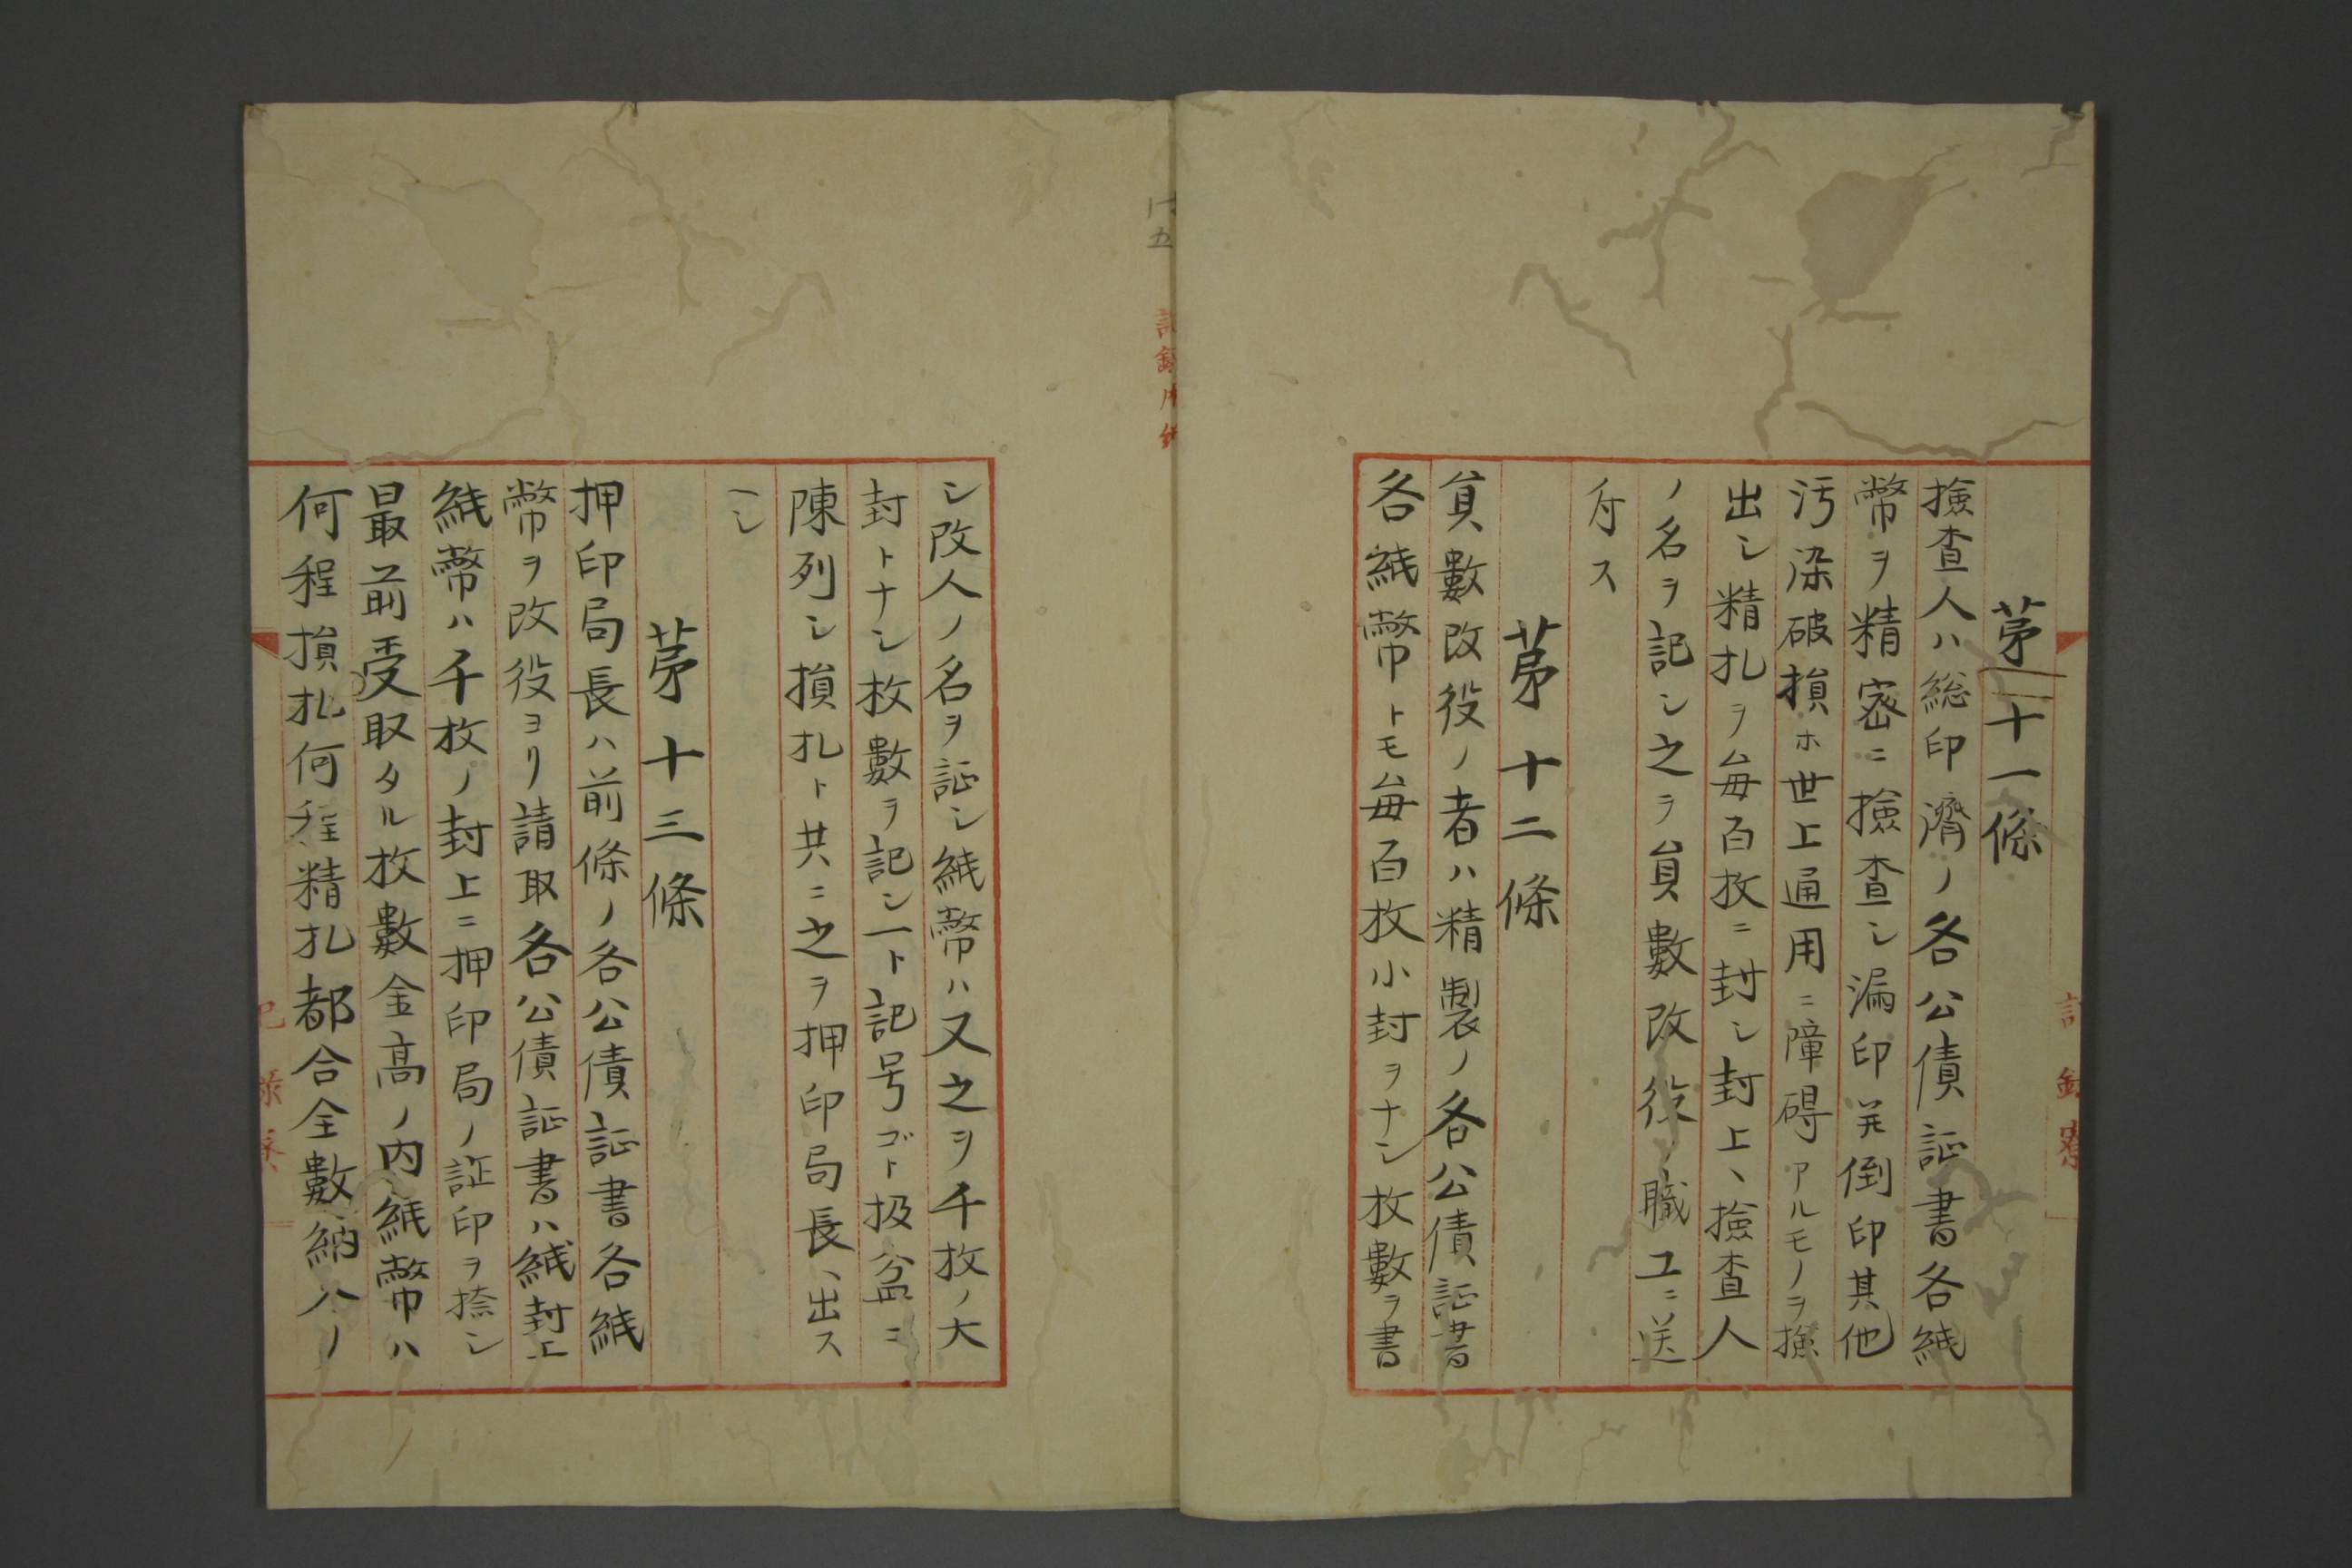 第十一條
撿査人ハ総印濟ノ各公債証書各紙
幣ヲ精密ニ撿査シ漏印并倒印其他
汚染破損ホ世上通用ニ障碍アルモノヲ撿
出シ精札ヲ毎百枚ニ封シ封上ヘ撿査人
ノ名ヲ記シ之ヲ員數改役ノ職工ニ送
付ス
第十二條
員數改役ノ者ハ精製ノ各公債証書
各紙幣トモ毎百枚小封ヲナシ枚數ヲ書
シ改人ノ名ヲ証シ紙幣ハ又之ヲ千枚ノ大
封トナシ枚數ヲ記シ一ト記号ゴト扱盆ニ
陳列シ損札ト共ニ之ヲ押印局長ヘ出ス
ヘシ
第十三條
押印局長ハ前條ノ各公債証書各紙
幣ヲ改役ヨリ請取各公債証書ハ紙封上
紙幣ハ千枚ノ封上ニ押印局ノ証印ヲ捺シ
最前受取タル枚數金高ノ内紙幣ハ
何程損札何程精札都合全數納ハノ